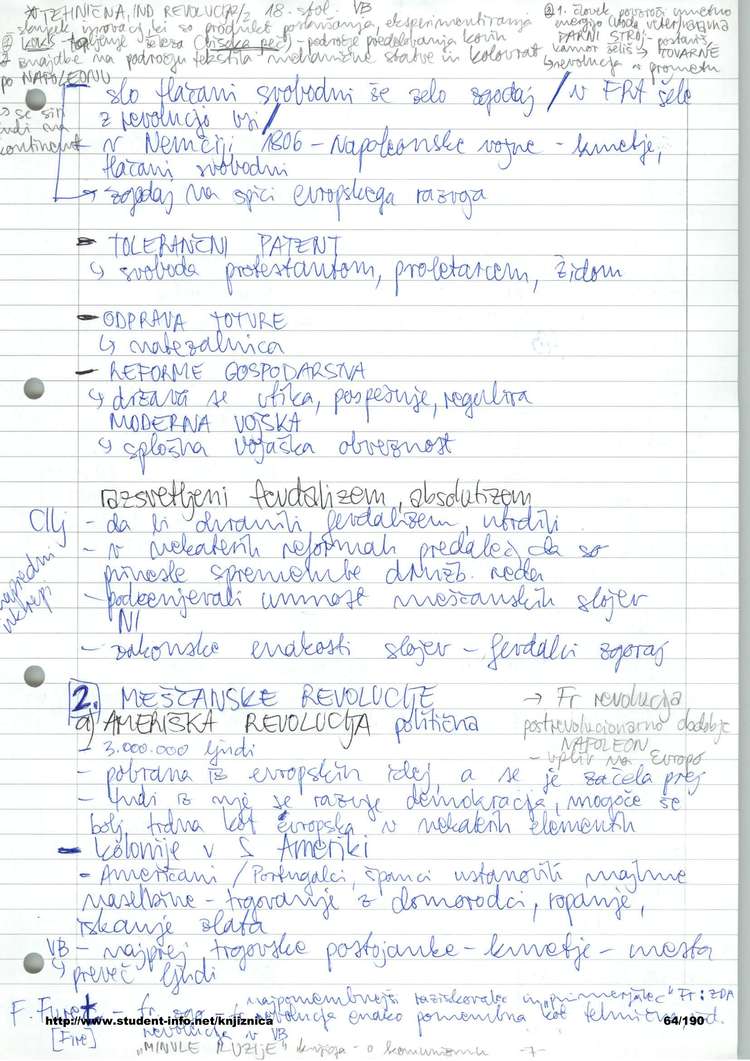 * TEHNIČNA, IND REVOLUCIJA/2 18. stol. VB
človek inovacij, ki so produkt eksperimentiranja
@ koks - topljenje železa (visoka peč) - področje predelovanja kovin
izumi na področju tekstila mehanične statve in kolovrat
@ 1. človek povzroči umetno
energijo (voda, veter)
PARNI STROJ - postaviš
kamor želiš → TOVARNE
↳ revolucija v prometu
po NAPOLEONU
→ se širi
tudi na
kontinent
slo tlačani svobodni še zelo zgodaj / v FRA šele
z revolucijo vsi /
- v Nemčiji 1806 - Napoleonske vojne - kmetje,
tlačani svobodni
→ zgodaj na špici evropskega razvoja
- TOLERANČNI PATENT
↳ svoboda protestantom, proletarcem, židom
- ODPRAVA TOTURE
↳ natezalnica
- REFORME GOSPODARSTVA
↳ država se vtika, pospešuje, regulira
MODERNA VOJSKA
↳ splošna vojaška obveznost
razsvetljeni fevdalizem, absolutizem
CILJ - da bi ohranili fevdalizem, utrdili
- v nekaterih reformah predaleč, da so
prinesle spremembe družb. reda
napredni
ukrepi
- podcenjevali umnost meščanskih slojev
NI
- zakonske enakosti slojev - fevdalci zgoraj
2. MEŠČANSKE REVOLUCIJE → Fr revolucija
a) AMERIŠKA REVOLUCIJA politična postrevolucionarno obdobje
NAPOLEON
- vpliv na Evropo
- 3.000.000 ljudi
- pobrana iz evropskih idej, a se je začela prej
- tudi iz nje se razvije demokracija, mogoče še
bolj trdna kot evropska v nekaterih elementih
- kolonije v S Ameriki
- Američani / Portugalci, Španci ustanovili majhne
naselbine - trgovanje z domorodci, ropanje,
iskanje zlata
VB - najprej trgovske postojanke - kmetje - mesta
↳ preveč ljudi
najpomembnejši raziskovalec in "primerjalec" Fr : ZDA
F. Furet - fr. revolucija enako pomembna kot tehnična ind.
[Fire] revolucija v VB
http://www.student-info.net/knjiznica
64/190
"MINULE ILUZIJE" knjiga - o komunizmu
- 7 -